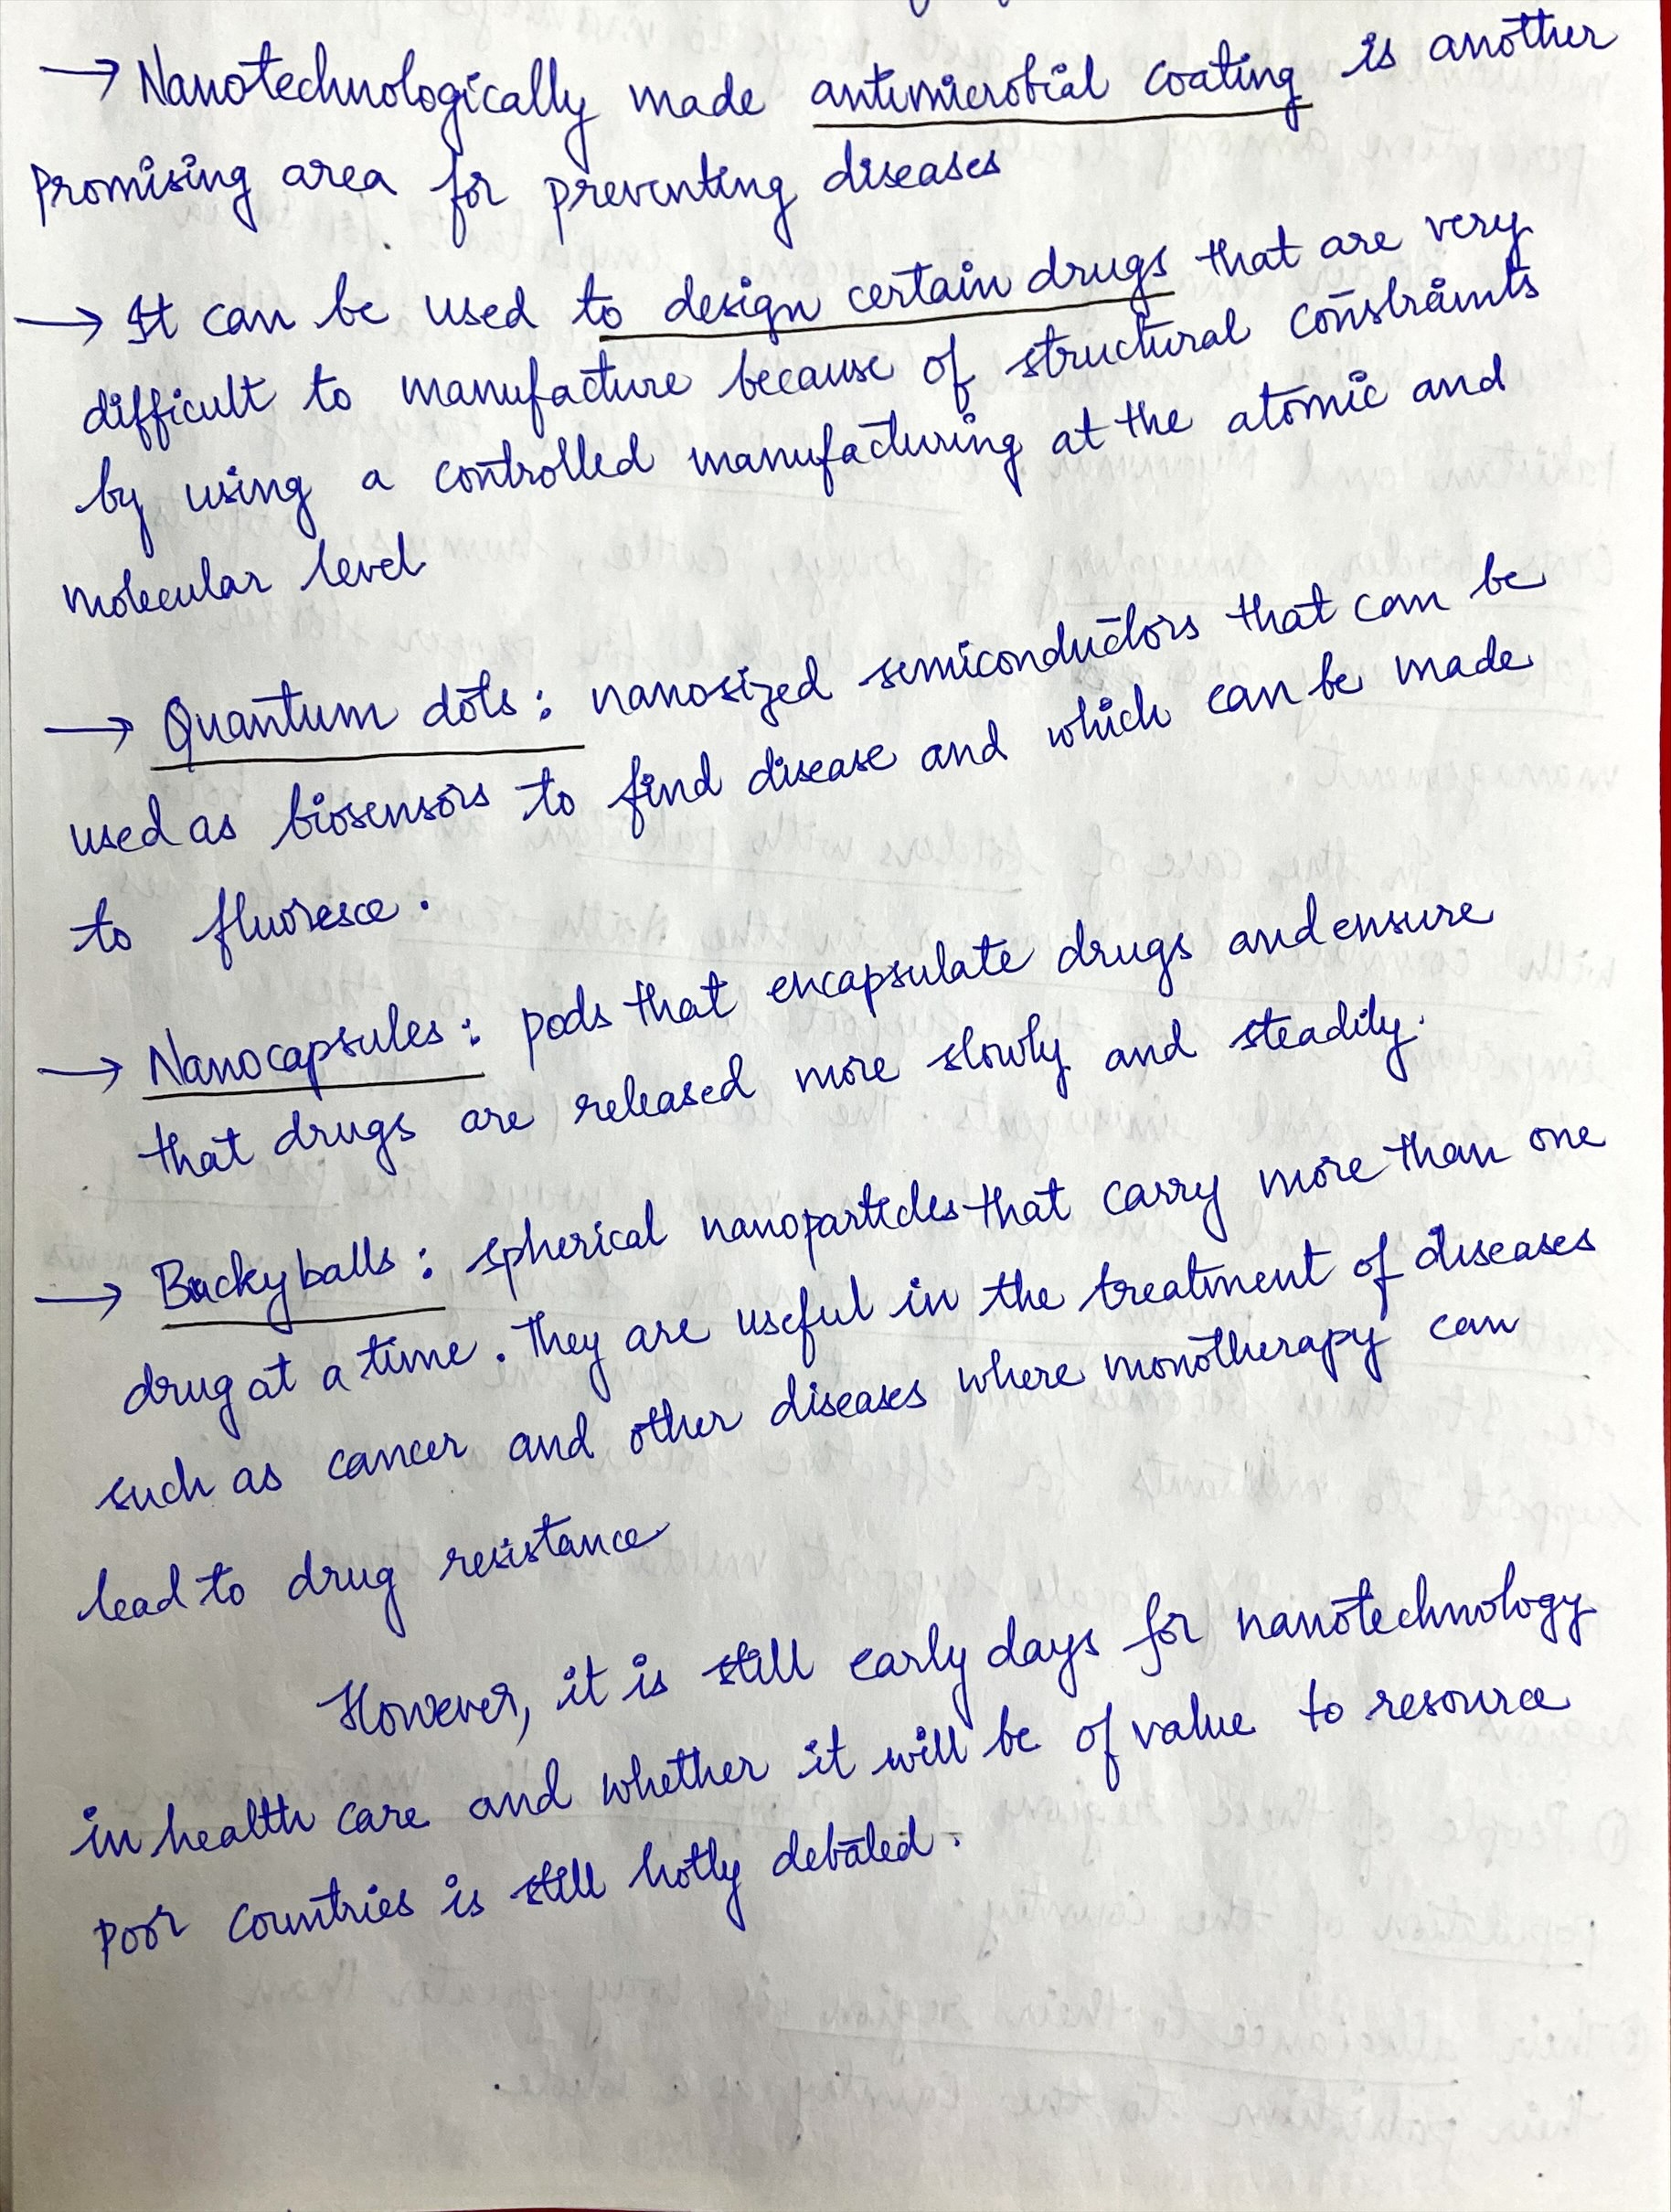 → Nanotechnologically made antimicrobial coating is another
promising area for preventing diseases
→ It can be used to design certain drugs that are very
difficult to manufacture because of structural constraints
by using a controlled manufacturing at the atomic and
molecular level
→ Quantum dots : nanosized semiconductors that can be
used as biosensors to find disease and which can be made
to fluoresce.
→ Nanocapsules : pods that encapsulate drugs and ensure
that drugs are released more slowly and steadily.
→ Buckyballs : spherical nanoparticles that carry more than one
drug at a time. They are useful in the treatment of diseases
such as cancer and other diseases where monotherapy can
lead to drug resistance
However, it is still early days for nanotechnology
in health care and whether it will be of value to resource
poor countries is still hotly debated.